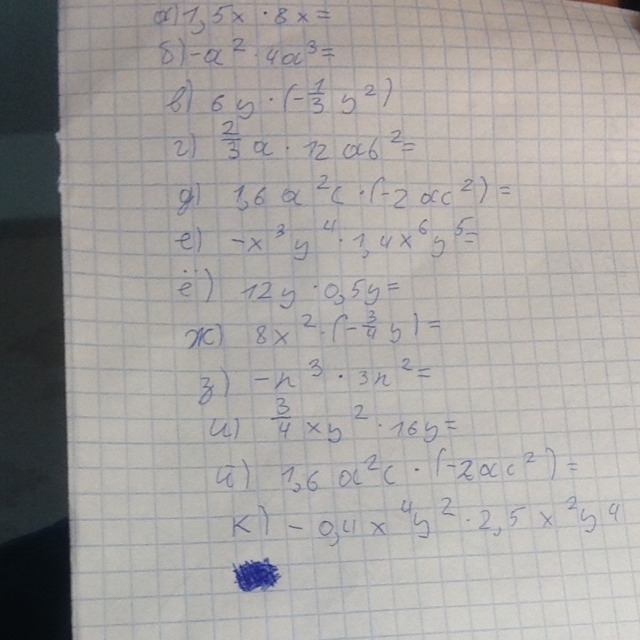 а) 1,5x · 8x =
б) -a² · 4a³ =
в) 6y · (-1/3 y²)
г) 2/3 a · 12 ab² =
д) 1,6 a²c · (-2 ac²) =
е) -x³y⁴ · 1,4x⁶y⁵ =
ё) 12y · 0,5y =
ж) 8x² · (-3/4 y) =
з) -n³ · 3n² =
и) 3/4 xy² · 16y =
й) 1,6 a²c · (-2ac²) =
к) - 0,4x⁴y² · 2,5x²y⁴